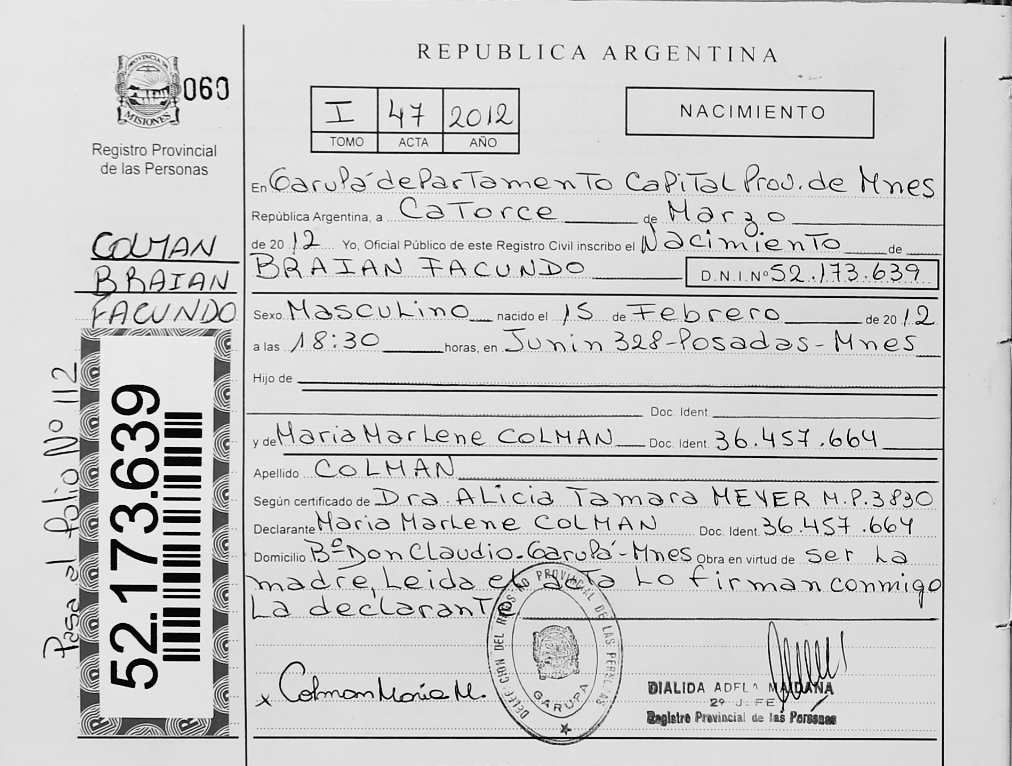 REPUBLICA ARGENTINA
PROVINCIA DE
MISIONES
060
Registro Provincial
de las Personas
I 47 2012
TOMO ACTA AÑO
NACIMIENTO
COLMAN
BRAIAN
FACUNDO
52.173.639
Pasa al folio Nº 112
En Garupá departamento Capital Prov. de Mnes
República Argentina, a Catorce de Marzo
de 2012 Yo, Oficial Público de este Registro Civil inscribo el Nacimiento de
BRAIAN FACUNDO D.N.I.Nº 52.173.639
Sexo Masculino nacido el 15 de Febrero de 2012
a las 18:30 horas, en Junin 328-Posadas-Mnes
Hijo de
Doc. Ident.
y de Maria Marlene COLMAN Doc. Ident. 36.457.664
Apellido COLMAN
Según certificado de Dra. Alicia Tamara MEYER M.P.3830
Declarante Maria Marlene COLMAN Doc. Ident. 36.457.664
Domicilio Bº Don Claudio-Garupá-Mnes Obra en virtud de ser la
madre, Leida el acta lo firman conmigo
La declarante
x Colman Maria M.
PROVINCIAL DE LAS PERSONAS
GARUPA
DIALIDA ADELA MAIDANA
Registro Provincial de las Personas